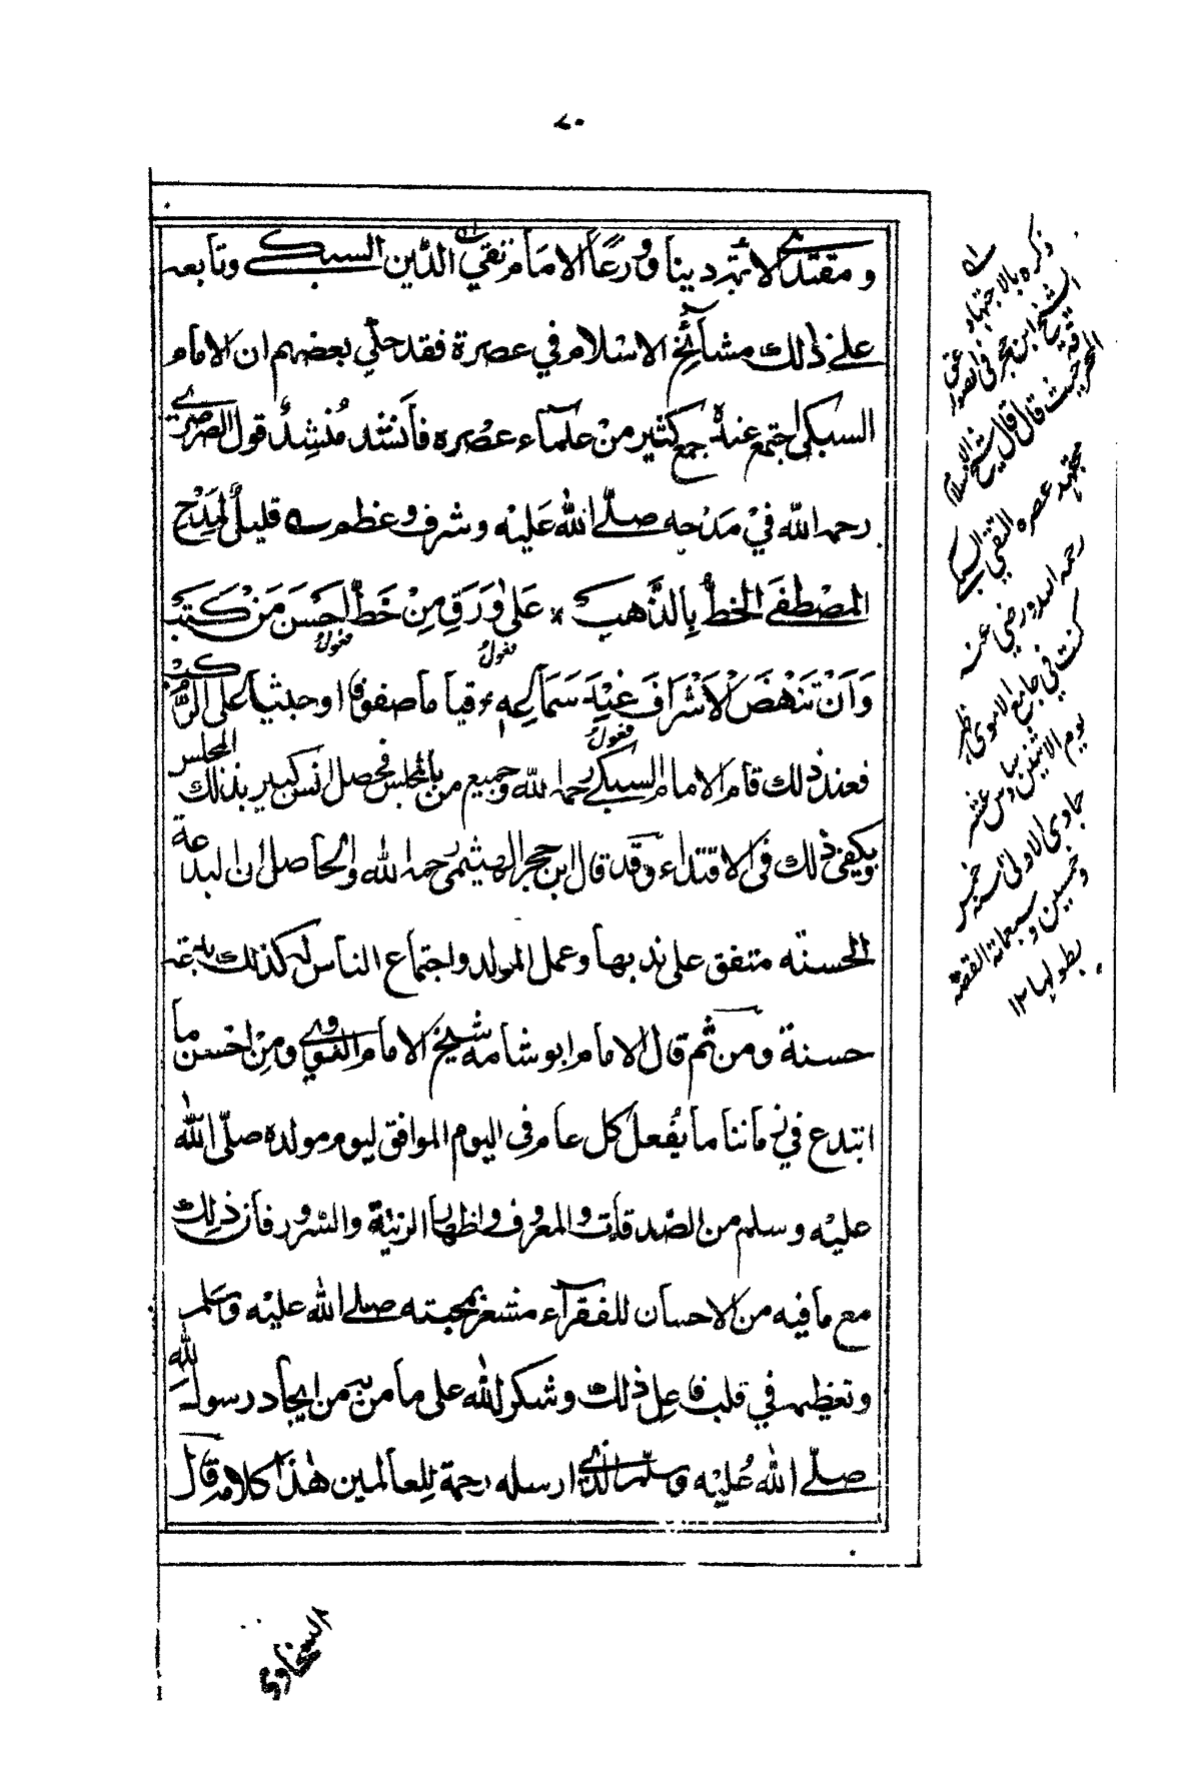 ٨٠
ومقتدى الائمة دينا وورعًا الامام تقي الدين السبكي وتابعه
على ذلك مشائخ الاسلام في عصرة فقد حكي بعضهم ان الامام
السبكي اجتمع عندهٗ جمع كثير من علماء عصره فانشد مُنشِدٌ قول الصرصري
رحمه الله في مدحه صلى الله عليه وشرف وعظم قليلٌ لمدح
المصطفى الخطُّ بالذَّهب على وَرَقٍ مِنْ خَطِّ احسَنَ مَنْ كَتَبْ
مفعول مفعول
وَاَنْ تنهَضَ الاَشْرَافَ عِنْدَ سَمَاعِهٖ قياما صفوفا اوجثيا على الرُّكَبْ
مفعول
فعند ذلك قام الامام السبكي رحمه الله وجميع من بالمجلس فحصل انس كبير بذلك المجلس
ويكفى ذلك فى الاقتداء وقد قال ابن حجر الهيثمى رحمه الله والحاصل ان البدعة
الحسنة متفق على ندبها وعمل المولد واجتماع الناس له كذلك بدعة
حسنة ومن ثم قال الامام ابو شامه شيخ الامام النووي ومن احسن ما
ابتدع في زماننا ما يُفعل كل عام فى اليوم الموافق ليوم مولده صلى الله
عليه وسلم من الصدقات والمعروف واظهار الزينة والسرور فان ذلك
مع ما فيه من الاحسان للفقراء مشعر بمحبته صلى الله عليه وسلم
وتعظيمه في قلب فاعل ذلك وشكر لله على ما من به من ايجاد رسول الله
صلى الله عليه وسلم الذي ارسله رحمة للعالمين هذا كلامه قال
السخاوي
ذكره بالاجتهاد
الشيخ ابن حجر فى
حيث قال قال شيخ الاسلام
مجتهد عصره التقي السبكي
رحمه الله ورضي عنه
كنت في جامع الاموي ظهر
يوم الاثنين سادس عشر
جمادى الاولى سنة خمس
وخمسين وسبعمائة القصة
بطولها ١٢